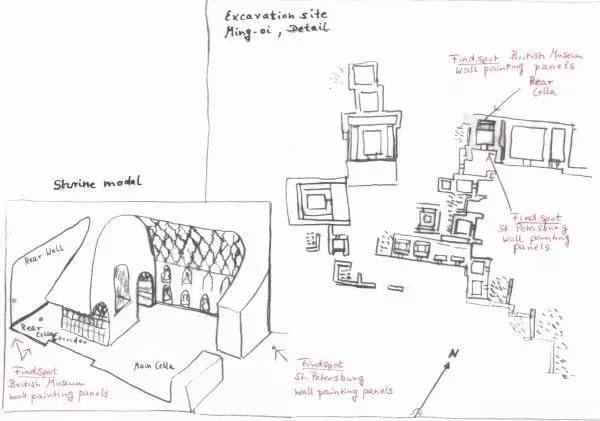 Excavation site
Ming-oi, Detail
Findspot British Museum
wall painting panels
Rear
Cella
Findspot
St. Petersburg
wall painting
panels
Shrine model
Rear Wall
Rear
Cella
Corridor
Main Cella
Findspot
British Museum
wall painting panels
Findspot
St. Petersburg
wall painting panels
N